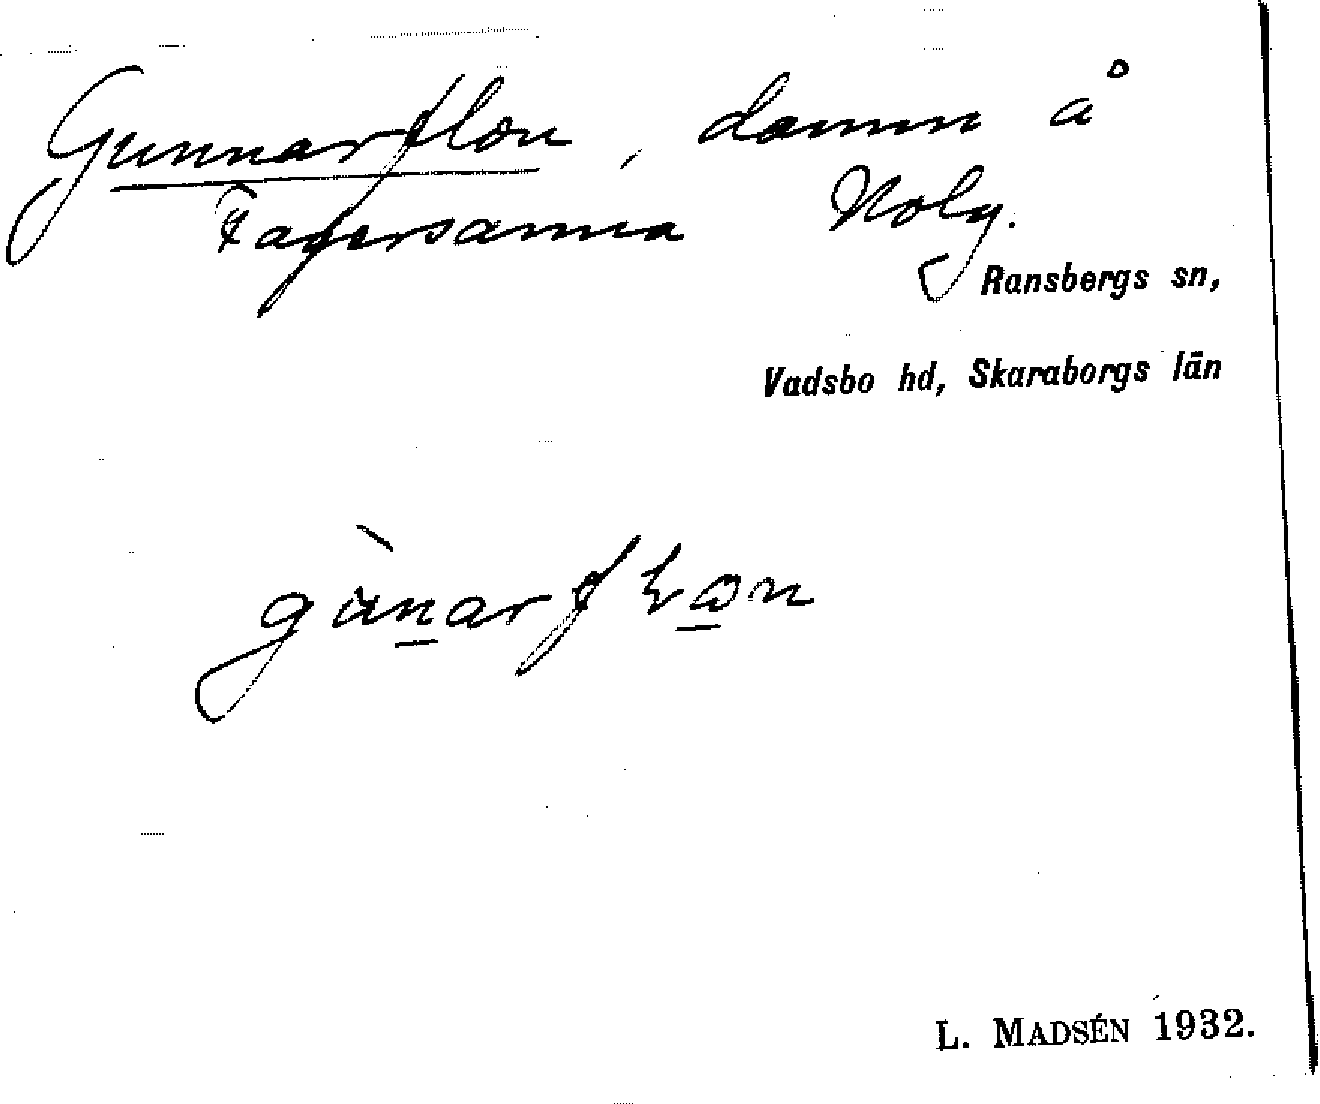 Gunnarflon, damm å
Fagersanna Nolg.
Ransbergs sn,
Vadsbo hd, Skaraborgs län
L. MADSÉN 1932.